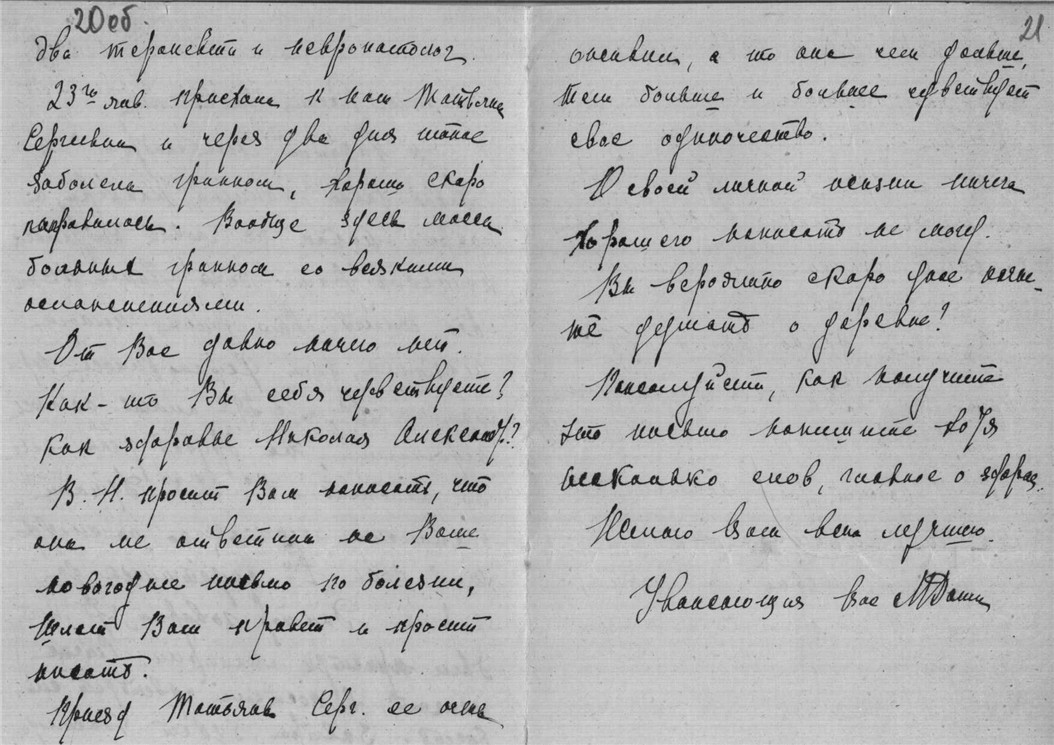 20об.
два терапевта и невропатолог.
23го янв. приехала к нам Татьяна
Сергеевна и через два дня также
заболела гриппом, хорошо скоро
поправилась. Вообще здесь масса
больных гриппом со всякими
осложнениями.
От Вас давно ничего нет.
Как-то Вы себя чувствуете?
Как здоровье Николая Александр.?
В. Н. просит Вам написать, что
она не ответила на Ваше
новогоднее письмо по болезни,
шлет Вам привет и просит
писать.
Приезд Татьяны Серг. ее очень
21
оживил, а то она чем дальше,
тем больше и больше чувствует
свое одиночество.
О своей личной жизни ничего
хорошего написать не могу.
Вы вероятно скоро уже начне-
те думать о деревне?
Пожалуйста, как получите
это письмо напишите хотя
несколько слов, главное о здоров.
Желаю Вам всего лучшего.
Уважающая Вас